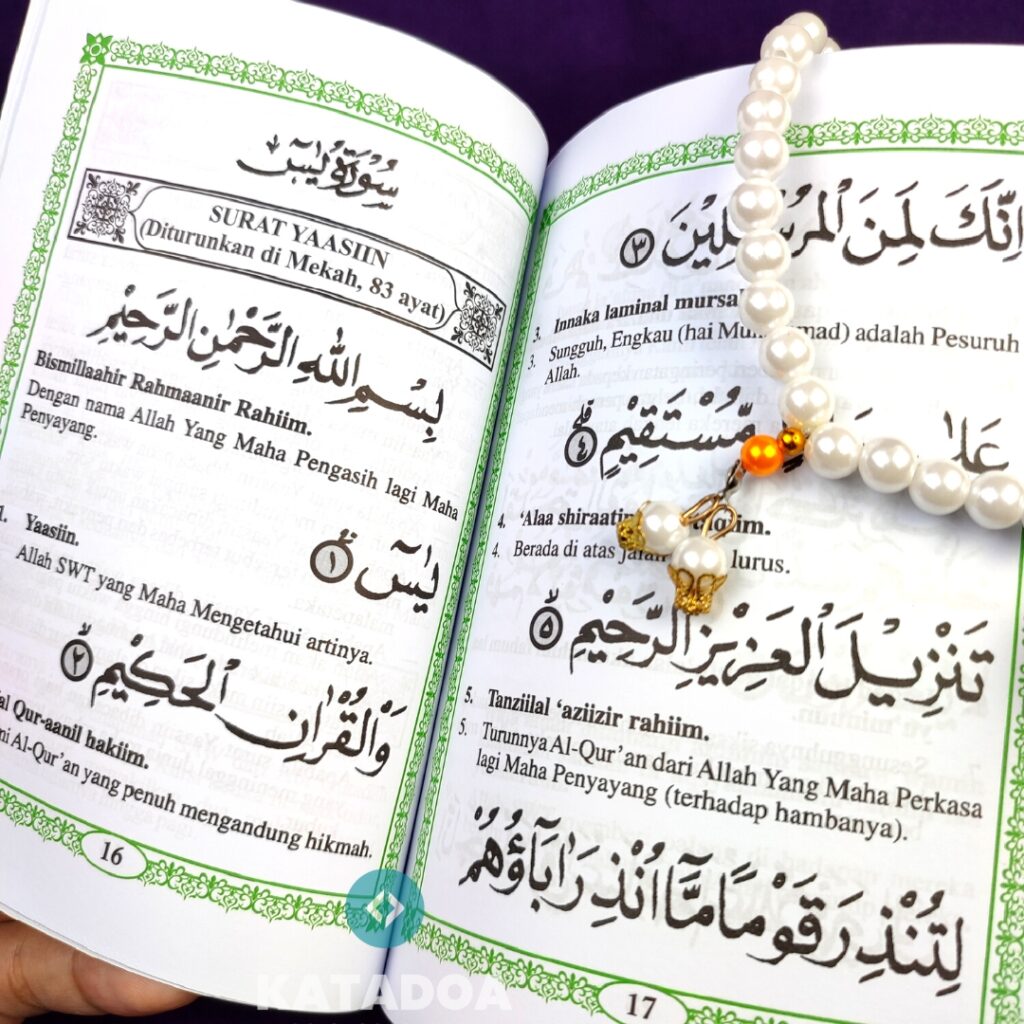 سُوْرَةُ يٰسٓ
SURAT YAASIIN
(Diturunkan di Mekah, 83 ayat)
بِسْمِ اللهِ الرَّحْمٰنِ الرَّحِيْمِ
Bismillaahir Rahmaanir Rahiim.
Dengan nama Allah Yang Maha Pengasih lagi Maha
Penyayang.
يٰسٓ ۝١
1. Yaasiin.
Allah SWT yang Maha Mengetahui artinya.
وَالْقُرْاٰنِ الْحَكِيْمِ ۝٢
al Qur-aanil hakiim.
Al-Qur'an yang penuh mengandung hikmah.
16
اِنَّكَ لَمِنَ الْمُرْسَلِيْنَ ۝٣
3. Innaka laminal
3. Sungguh, Engkau (hai adalah Pesuruh
Allah.
مُّسْتَقِيْمٍ ۝٤
4. 'Alaa
4. Berada di atas lurus.
تَنْزِيْلَ الْعَزِيْزِ الرَّحِيْمِ ۝٥
5. Tanziilal 'aziizir rahiim.
5. Turunnya Al-Qur'an dari Allah Yang Maha Perkasa
lagi Maha Penyayang (terhadap hambanya).
لِتُنْذِرَ قَوْمًا مَّآ اُنْذِرَ اٰبَاؤُهُمْ
17
KATADOA